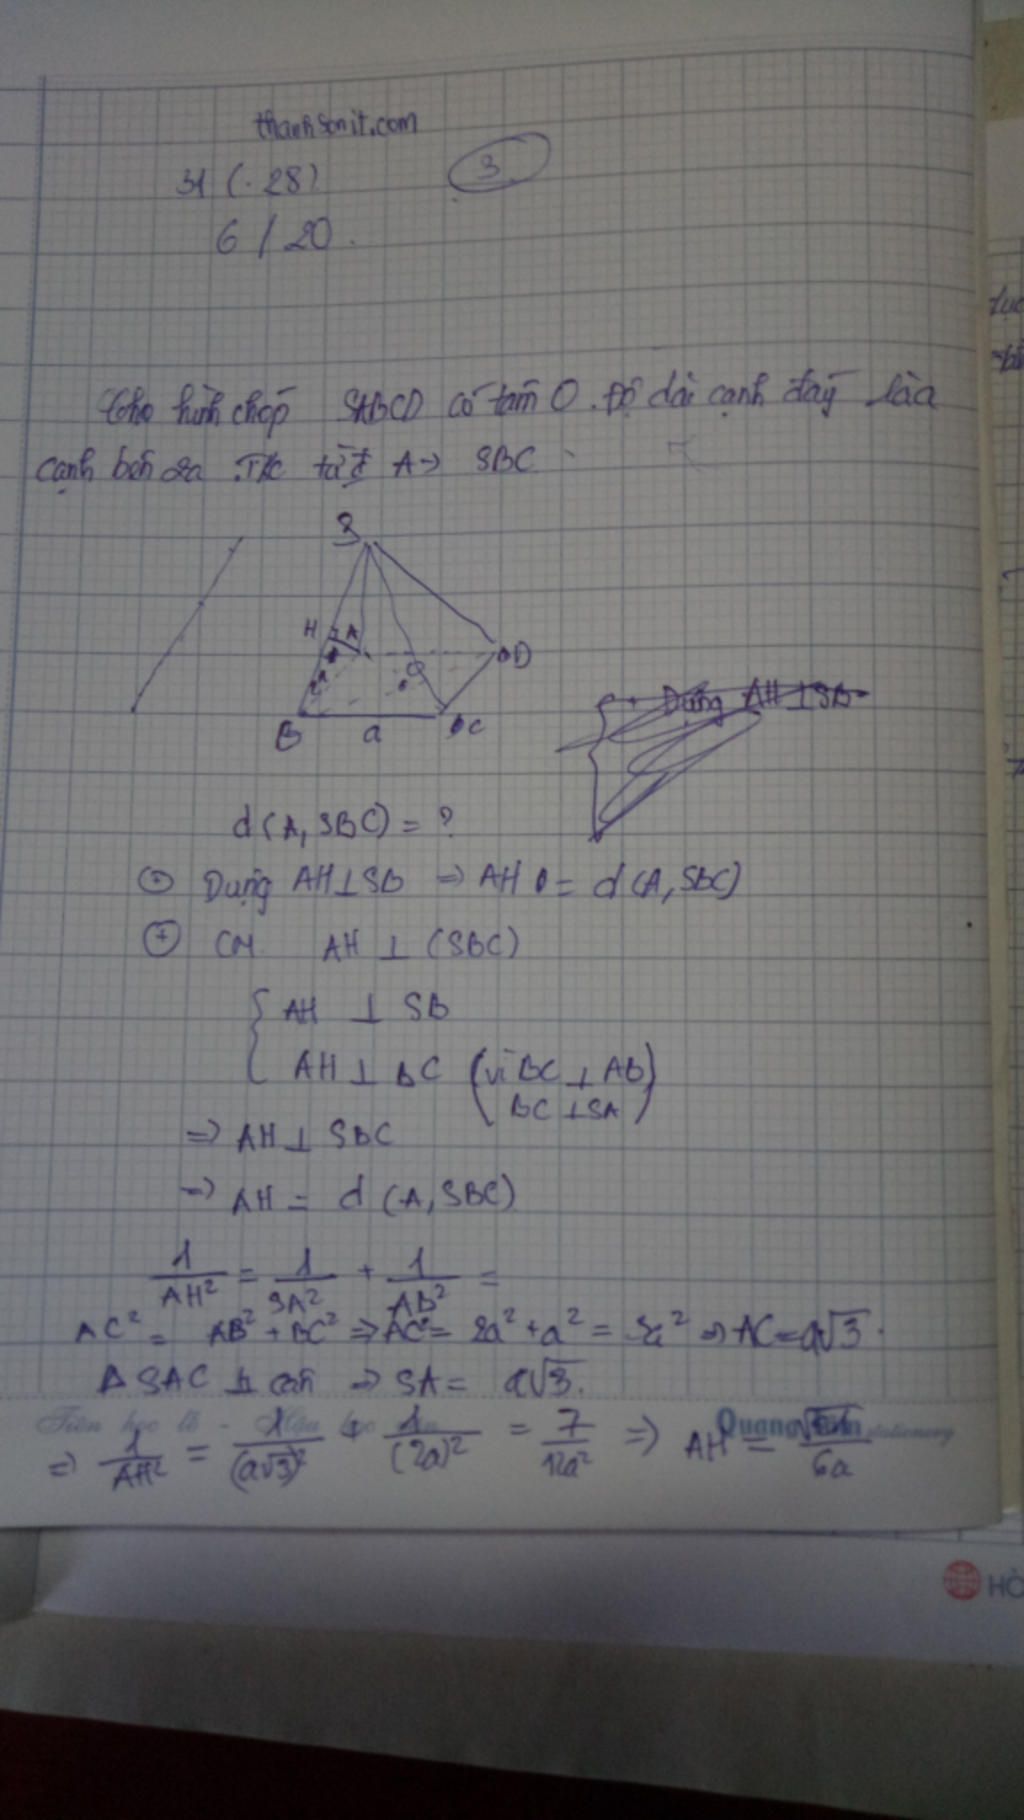 thanhsonit.com
31 (.28)
3
6 / 20.
Cho hình chóp SABCD có tâm O. Độ dài cạnh đáy là a
cạnh bên 2a. từ A → SBC
S
H
A
O
D
B
a
C
+ Dựng AH ⊥ SB
d(A, SBC) = ?
Dựng AH ⊥ SB => AH = d(A, SBC)
+ CM AH ⊥ (SBC)
{ AH ⊥ SB
AH ⊥ BC (vì BC ⊥ AB
BC ⊥ SA)
=> AH ⊥ SBC
=> AH = d (A, SBC)
1/AH² = 1/SA² + 1/AB² =
AC² = AB² + BC² => AC² = 2a² + a² = 3a² => AC = a√3.
Δ SAC ⊥ cân => SA = a√3.
Tiên học lễ - Hậu học văn
Quang
stationery
=> 1/AH² = 1/(a√3)² + 1/(2a)² = 7/12a² => AH = /6a
HÒ